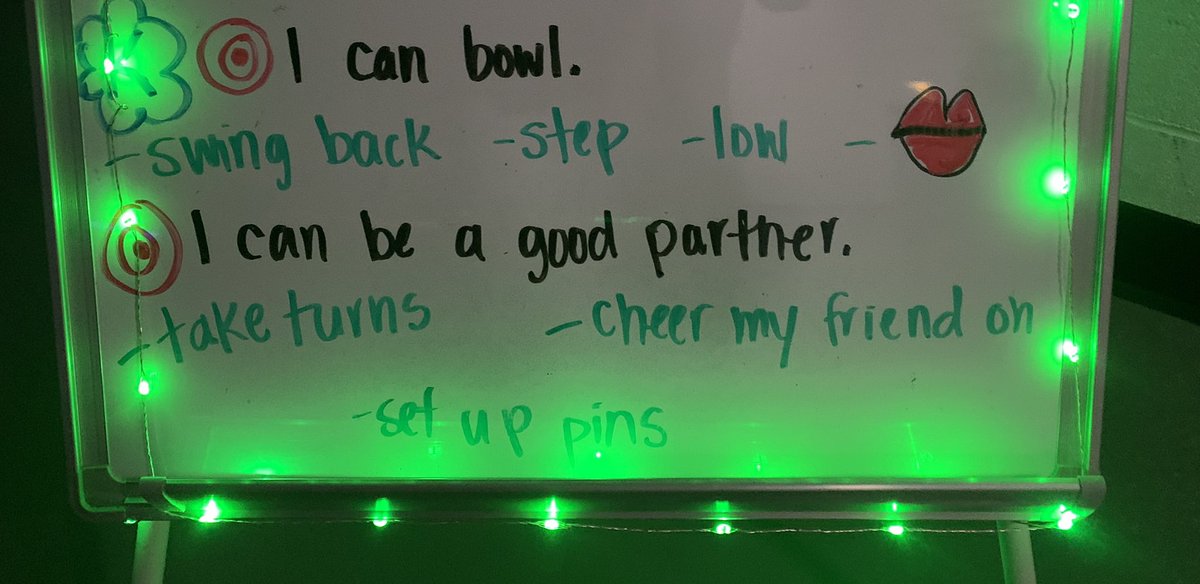 I can bowl.
-swing back -step -low -
I can be a good partner.
-take turns -cheer my friend on
-set up pins